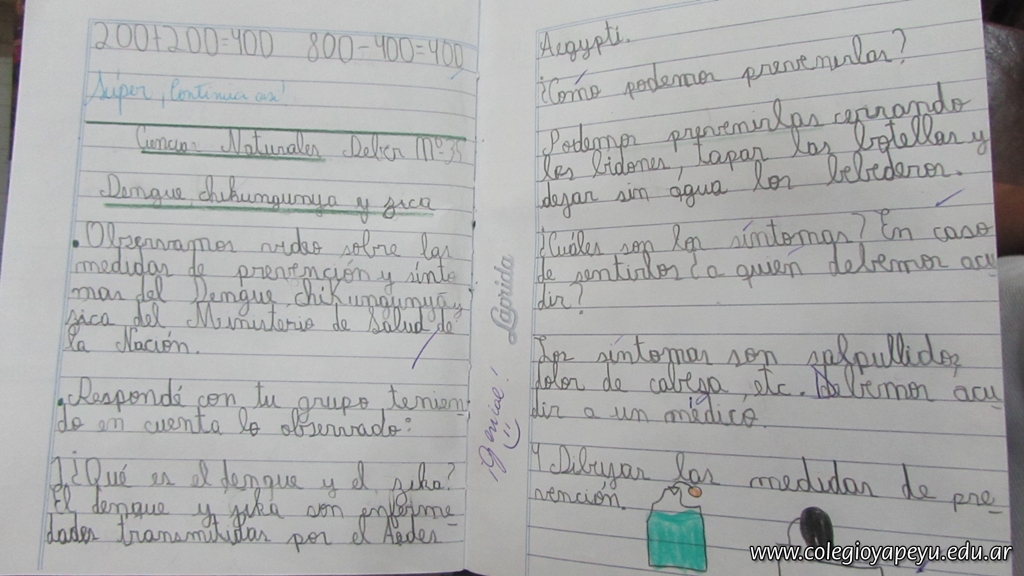 200+200=400 800-400=400
Súper, continua así!
Ciencias Naturales Deber Nº 35
Dengue, chikungunya y zica
• Observamos video sobre las
medidas de prevención y sínto
mas del Dengue, chikungunya y
zica del Ministerio de Salud de
la Nación.
• Respondé con tu grupo tenien-
do en cuenta lo observado:
1 ¿Qué es el dengue y el zika?
El dengue y zika son enferme-
dades transmitidas por el Aedes
Laprida
genial!
Aegypti.
¿Cómo podemos prevenirlas?
Podemos prevenirlas cerrando
los bidones, tapar las botellas y
dejar sin agua los bebederos.
¿Cuáles son los síntomas? En caso
de sentirlos ¿a quién debemos acu
dir?
Los síntomas son salpullidos,
dolor de cabesa, etc. Debemos acu-
dir a un médico.
4 Dibujar las medidas de pre-
vención.
www.colegioyapeyu.edu.ar